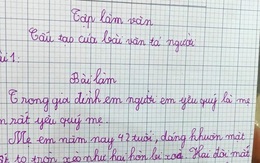 Tập làm văn
Cấu tạo của bài văn tả người
1:
Bài làm
Trong gia đình em người em yêu quý là mẹ
rất yêu quý mẹ.
Mẹ em năm nay 42 tuổi, dáng khuôn mặt
to tròn xoe như hai hòn bi xoa. Hai đôi mắt